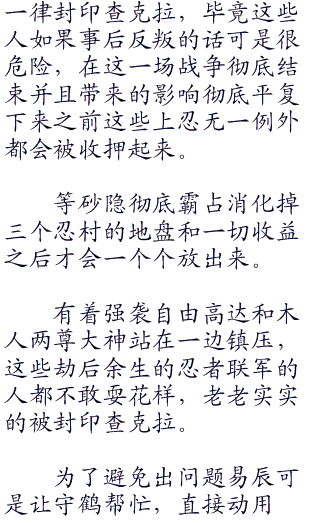 一律封印查克拉，毕竟这些
人如果事后反叛的话可是很
危险，在这一场战争彻底结
束并且带来的影响彻底平复
下来之前这些上忍无一例外
都会被收押起来。
等砂隐彻底霸占消化掉
三个忍村的地盘和一切收益
之后才会一个个放出来。
有着强袭自由高达和木
人两尊大神站在一边镇压，
这些劫后余生的忍者联军的
人都不敢耍花样，老老实实
的被封印查克拉。
为了避免出问题易辰可
是让守鹤帮忙，直接动用